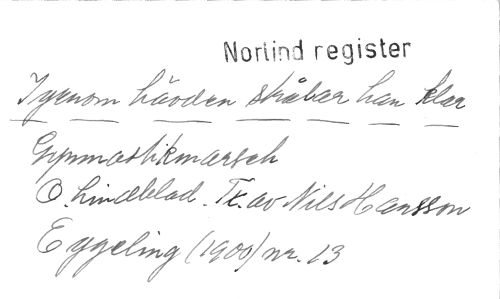 Norlind register
Igenom härden skråbar han klar
Gymnastikmarsch
O. Lindblad. Tx. av Nils Hansson
Eggeling (1900) nr. 13